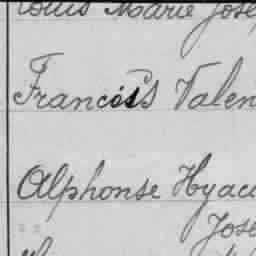 Louis Marie Jose
Francois Valen
Alphonse Hyac
Jose